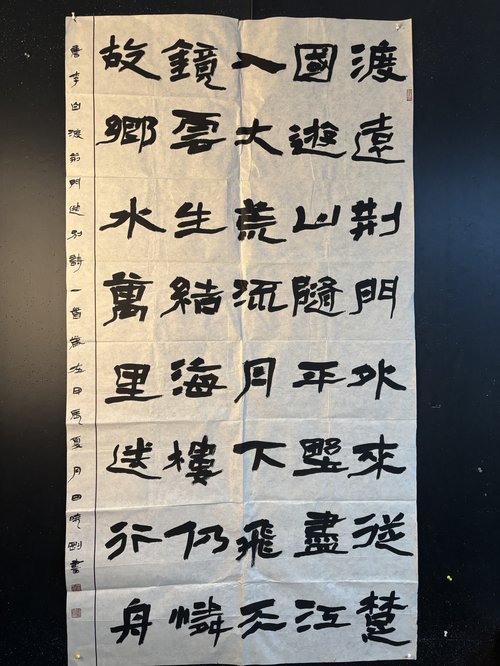 渡遠荆門外來從楚
國遊山隨平墅盡江
入大荒流月下飛天
鏡雲生結海樓仍憐
故鄉水萬里送行舟
唐李白渡荆門送別詩一首歲在甲辰夏月田曉剛書